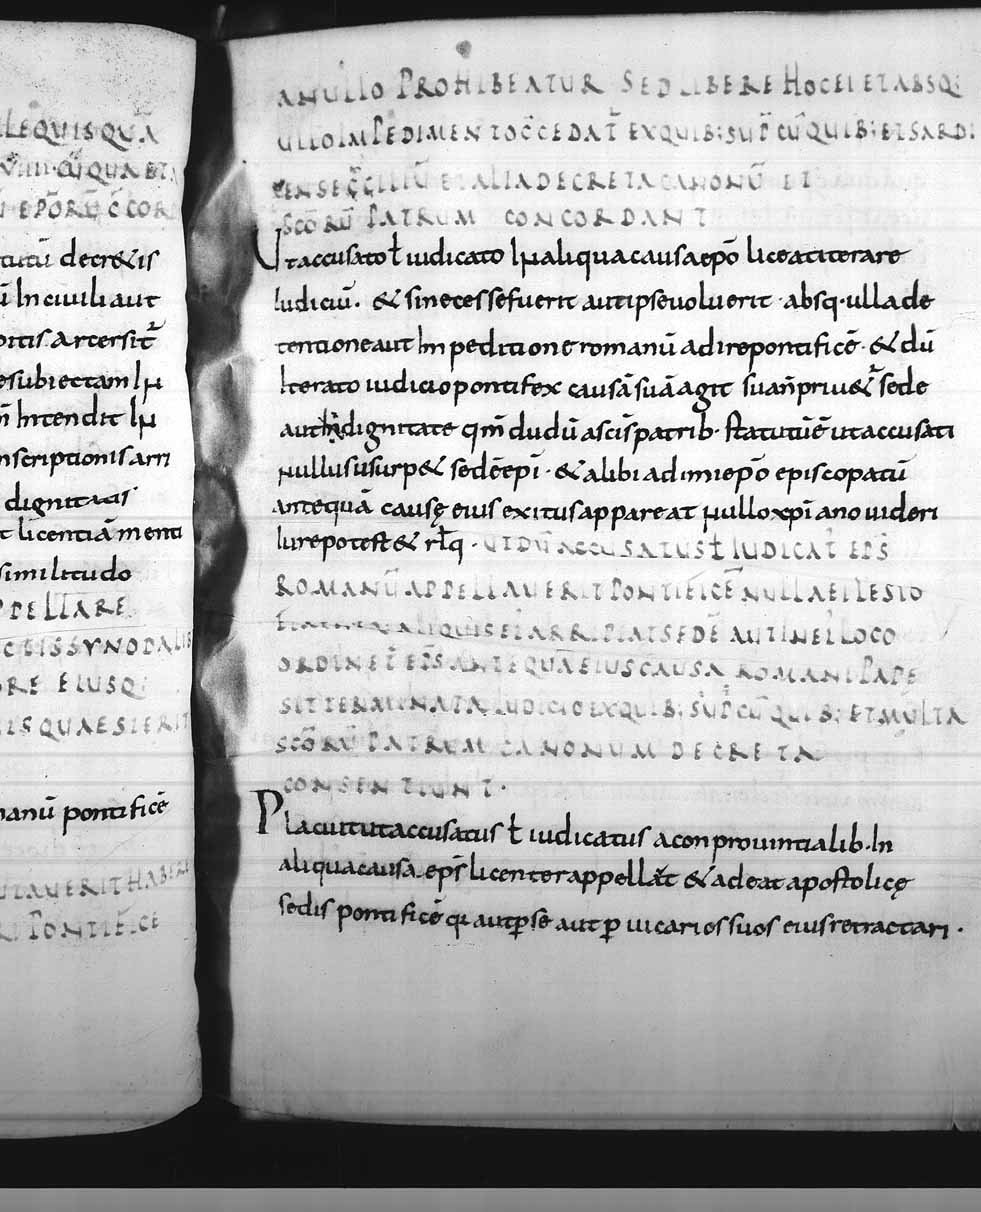 LEQUISQUĀ
decr&is
ū Inciuiliaut
arcersit̄
esubiectam Iṅ
m̄ Intendit Iṅ
nscriptionisarri
dignitatis
t licentiā menti
similitudo
PPELLARE
CTISSYNODALIB
ORE EIUSQ;
IS QUAESIERIT
manū pontificē
ULAUERIT HABERE
PONTIFICE
A NULLO PROHIBEATUR SED LIBERE HOC EI ET ABSQ;
ULLO IMPEDIMENTO C̄CEDAT̄ EX QUIB; SUP̄ CŪ QUIB; ET SARDI
CENSE C̄CILIŪ ET ALIA DECRETA CANONŪ ET
SC̄ORŪ PATRUM CONCORDANT
Ut accusato ł iudicato In aliqua causa ep̄o liceat iterare
Iudiciū. & si necesse fuerit aut ipse uoluerit absq· ulla de
tentione aut Inpeditione romanū adire pontificē· & dū
Iterato iudicio pontifex causā suā agit
aut dignitate qm̄ dudū a sc̄is patrib· statutū ē ut accusati
nullus usurp& sedē ep̄i · & alibi adimi ep̄o episcopatū
antequā causę eius exitus appareat nullo xp̄iano uideri
Iure potest & rł̄q · UT DŪ ACCUSATUS ł IUDICAT̄ EP̄S
ROMANŪ APPELLAUERIT PONTIFICĒ NULLA EI LESIO
ALIQUIS EI ARRIPIAT SEDĒ AUT IN EI' LOCO
ORDINET̄ EP̄S ANTEQUĀ EIUS CAUSA ROMANI PAPE
SIT TERMINATA IUDICIO EX QUIB; SUP̄ CŪ QUIB; ET MULTA
SC̄ORŪ PATRUM CANONUM DECRETA
CONSENTIUNT·
Placuit ut accusatus ł iudicatus a conprouintialib· In
aliqua causa ep̄s licenter appell&́ & adeat apostolicę
sedis pontificē qi aut p̱ se aut p̱ uicarios suos eius retractari ·